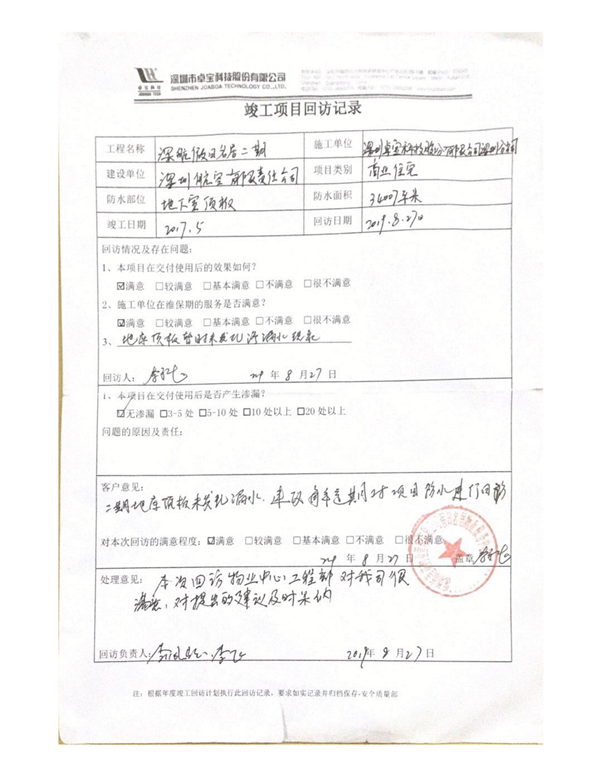 卓宝科技
深圳市卓宝科技股份有限公司
SHENZHEN JOABOA TECHNOLOGY CO.,LTD.
竣工项目回访记录
工程名称 深航假日名居二期 施工单位 深圳卓宝科技股份有限公司深圳分公司
建设单位 深圳航空有限责任公司 项目类别 商业住宅
防水部位 地下室顶板 防水面积 34007平米
竣工日期 2017.5 回访日期 2019.8.27日
回访情况及存在问题:
1、本项目在交付使用后的效果如何?
☑满意 □较满意 □基本满意 □不满意 □很不满意
2、施工单位在维保期的服务是否满意?
☑满意 □较满意 □基本满意 □不满意 □很不满意
3、地库顶板暂时未发现渗漏水现象
回访人: 年 8 月 27 日
1、本项目在交付使用后是否产生渗漏?
☑无渗漏 □3-5 处 □5-10 处 □10 处以上 □20 处以上
问题的原因及责任:
客户意见:
二期地库顶板未发现漏水.建议 对项目防水进行回访
对本次回访的满意程度: ☑满意 □较满意 □基本满意 □不满意 □很不满意
年 8 月 27 日 盖章
处理意见: 本次回访物业中心工程部对我司很
满意,对提出的建议及时采纳
回访负责人: 2019 年 8 月 27 日
注:根据年度竣工回访计划执行此回访记录,要求如实记录并归档保存,安全质量部